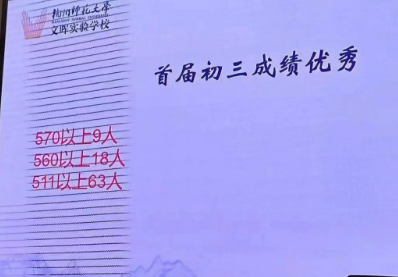 杭州师范大学
文晖实验学校
首届初三成绩优秀
570以上9人
560以上18人
511以上63人